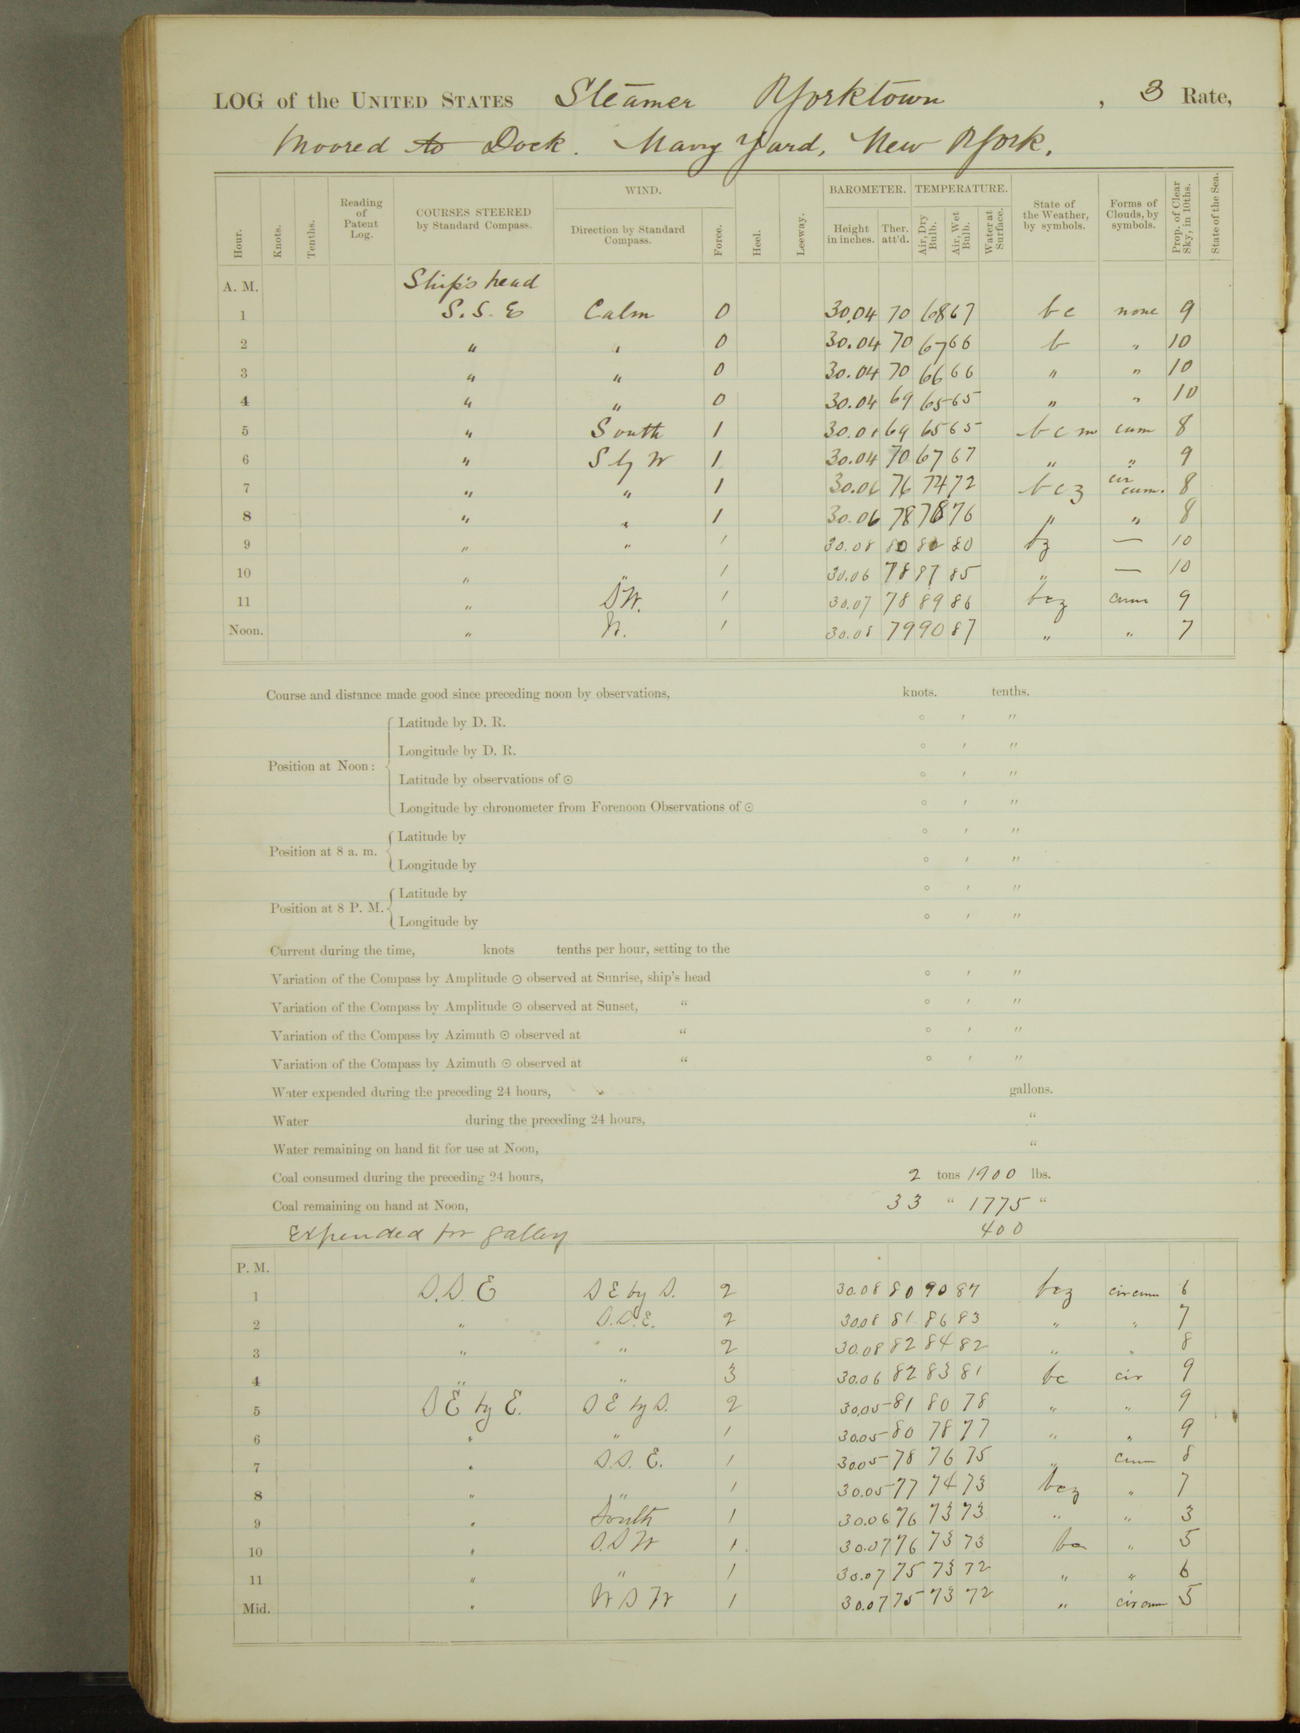 LOG of the UNITED STATES Steamer Yorktown, 3 Rate,
Moored to Dock. Navy Yard, New York.
Hour. Knots. Tenths. Reading of Patent Log. COURSES STEERED by Standard Compass. WIND. Direction by Standard Compass. Force. Heel. Leeway. BAROMETER. Height in inches. Ther. att'd. TEMPERATURE. Air, Dry Bulb. Air, Wet Bulb. Water at Surface. State of the Weather, by symbols. Forms of Clouds, by symbols. Prop. of Clear Sky, in 10ths. State of the Sea.
A. M. Ship's head
1 S. S. E Calm 0 30.04 70 68 67 bc none 9
2 " " 0 30.04 70 67 66 b " 10
3 " " 0 30.04 70 66 66 " " 10
4 " " 0 30.04 69 65 65 " " 10
5 " South 1 69 65 65 bcm cum 8
6 " S by W 1 30.04 70 67 67 " " 9
7 " " 1 30.06 76 74 72 bcz cir cum. 8
8 " " 1 30.06 78 78 76 " " 8
9 " " 1 30.08 80 82 80 bz — 10
10 " " 1 30.06 78 87 85 " — 10
11 " SW. 1 30.07 78 89 86 bcz cum 9
Noon. " W. 1 30.08 79 90 87 " " 7
Course and distance made good since preceding noon by observations, knots. tenths.
Position at Noon: Latitude by D. R. ° ' "
Longitude by D. R. ° ' "
Latitude by observations of ☉ ° ' "
Longitude by chronometer from Forenoon Observations of ☉ ° ' "
Position at 8 a. m. Latitude by ° ' "
Longitude by ° ' "
Position at 8 P. M. Latitude by ° ' "
Longitude by ° ' "
Current during the time, knots tenths per hour, setting to the
Variation of the Compass by Amplitude ☉ observed at Sunrise, ship's head ° ' "
Variation of the Compass by Amplitude ☉ observed at Sunset, " ° ' "
Variation of the Compass by Azimuth ☉ observed at " ° ' "
Variation of the Compass by Azimuth ☉ observed at " ° ' "
Water expended during the preceding 24 hours, gallons.
Water during the preceding 24 hours, "
Water remaining on hand fit for use at Noon, "
Coal consumed during the preceding 24 hours, 2 tons 1900 lbs.
Coal remaining on hand at Noon, 33 " 1775 "
Expended for galley 400
P. M.
1 S. S. E SE by S. 2 30.08 80 90 87 bcz circum 6
2 " S.S.E. 2 30.08 81 86 83 " " 7
3 " " 2 30.08 82 84 82 " " 8
4 " " 3 30.06 82 83 81 bc cir 9
5 SE by E. SE by S. 2 30.05 81 80 78 " " 9
6 " " 1 30.05 80 78 77 " " 9
7 " S.S. E. 1 30.05 78 76 75 " cum 8
8 " " 1 30.05 77 74 73 bcz " 7
9 " South 1 30.06 76 73 73 " " 3
10 " S.SW 1. 30.07 76 73 73 bc " 5
11 " " 1 30.07 75 73 72 " " 6
Mid. " WSW 1 30.07 75 73 72 " circum 5